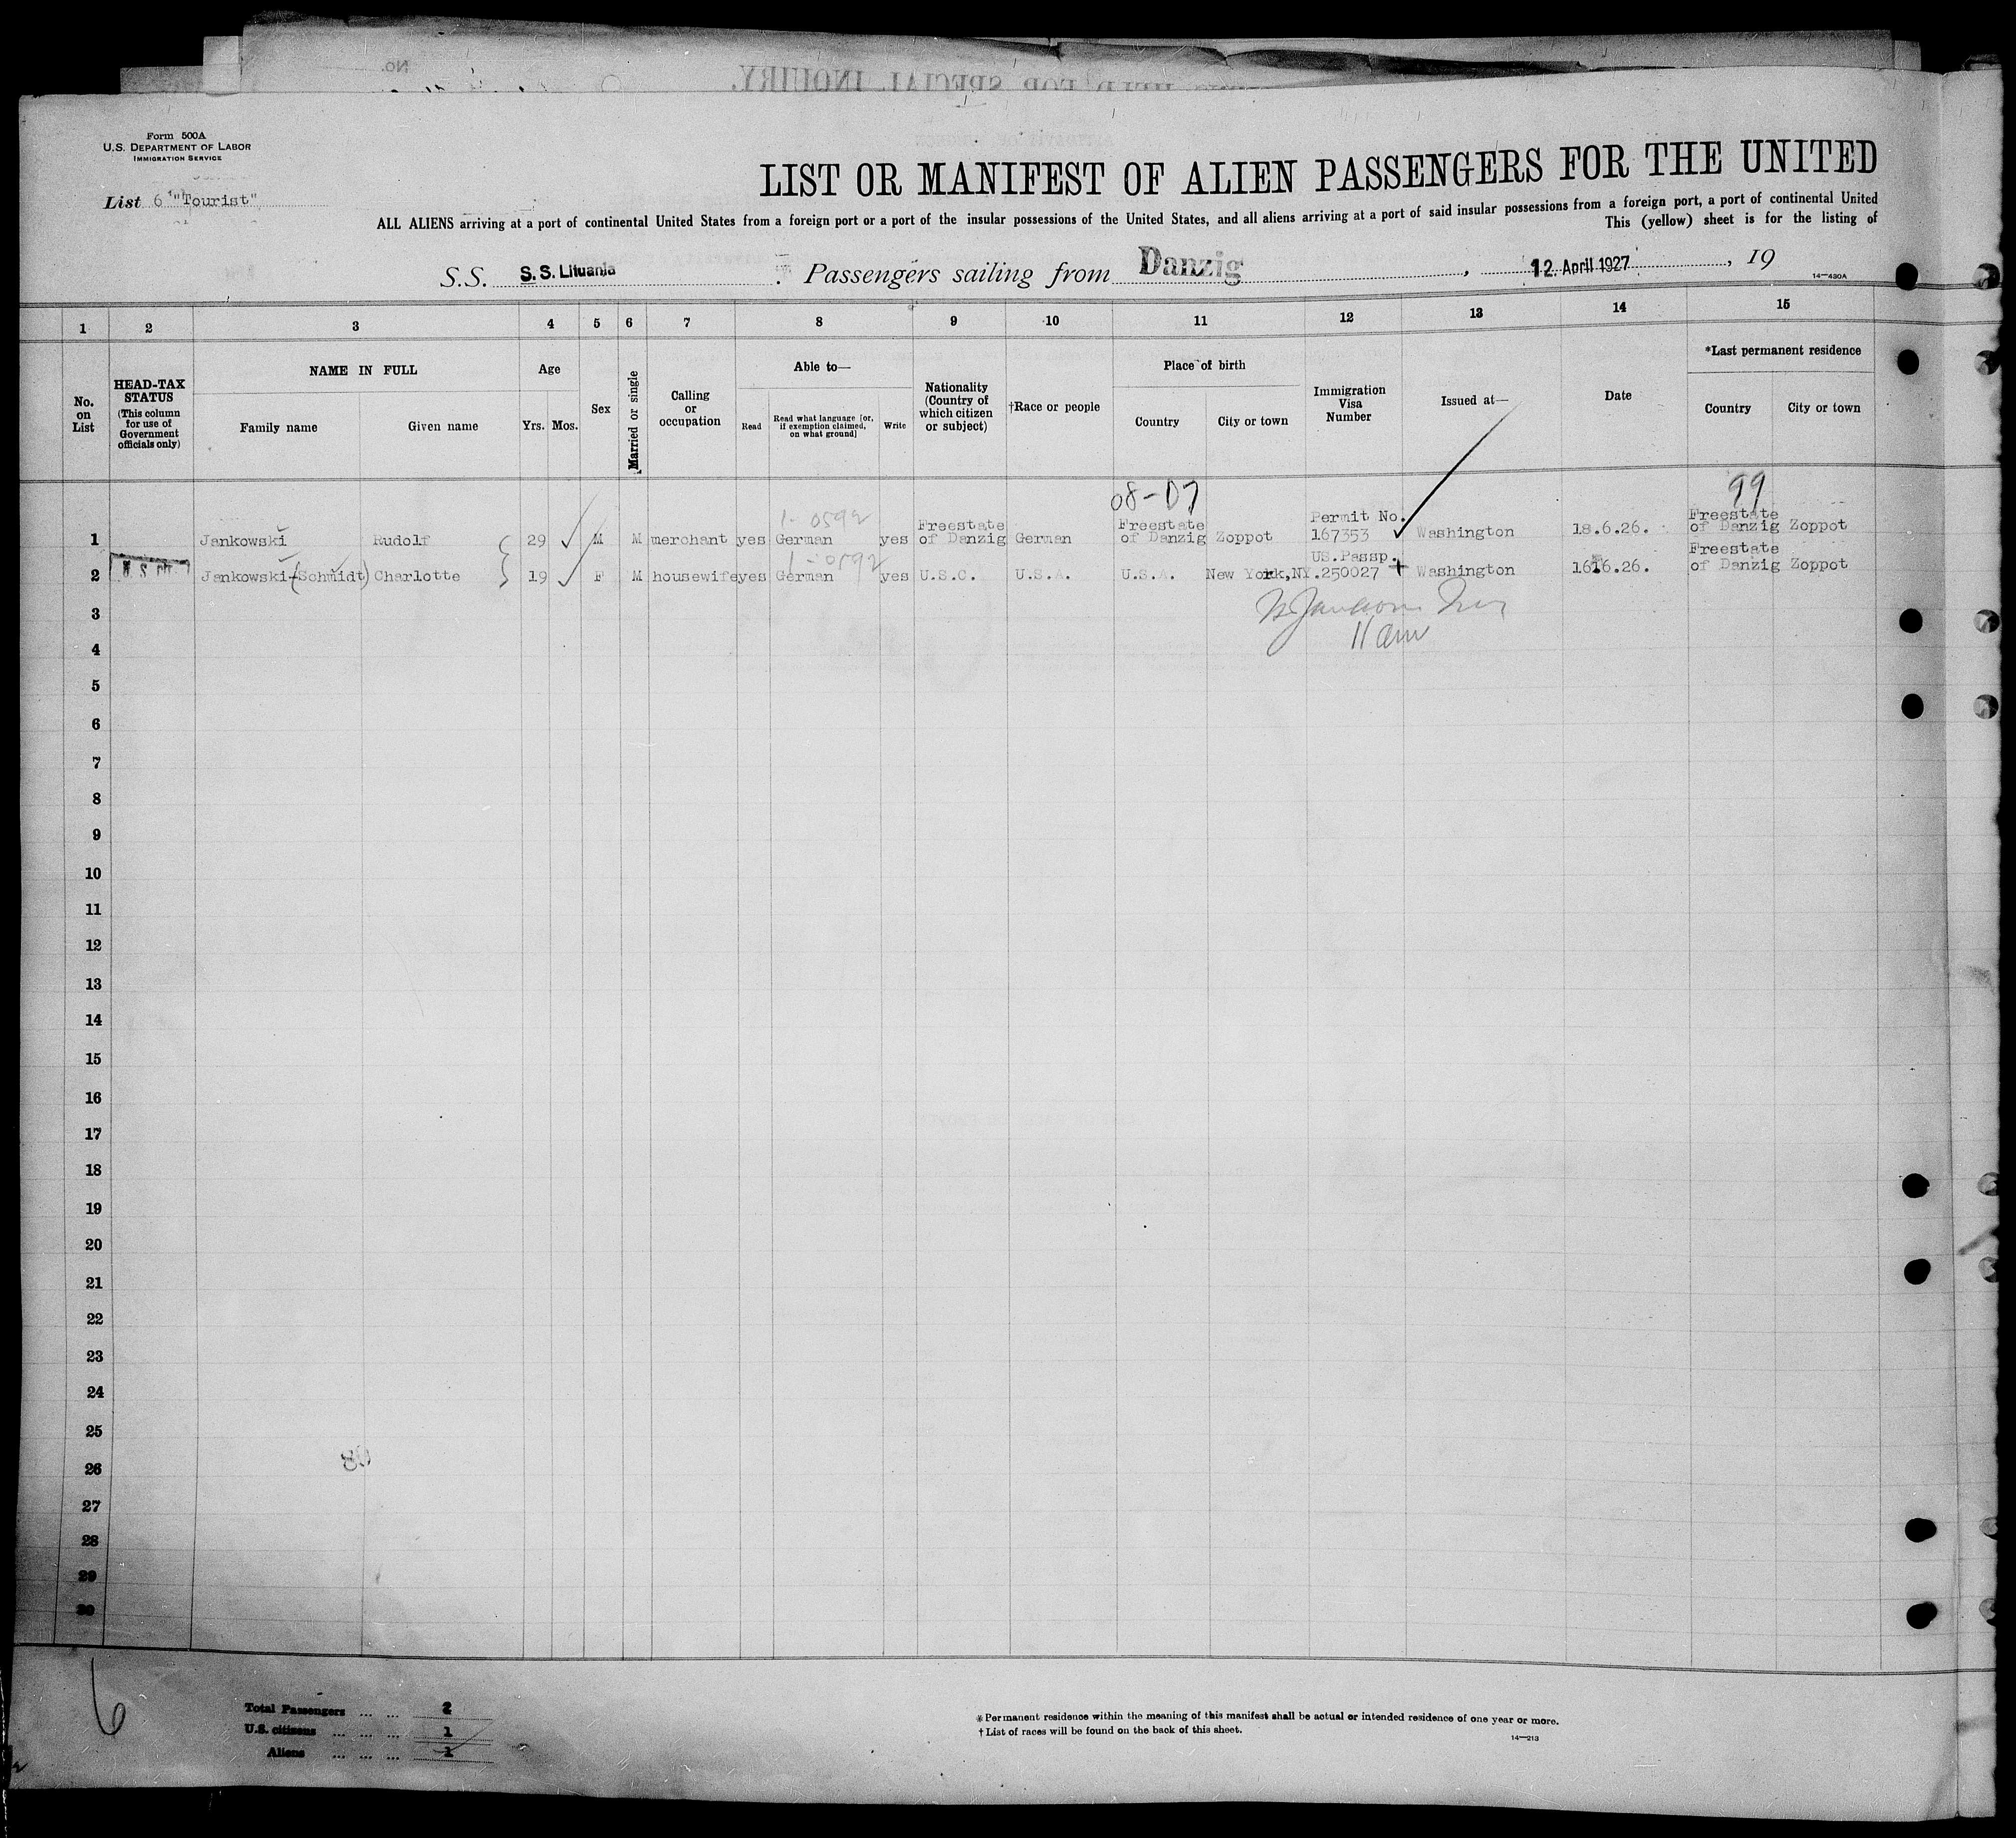 Form 500A
U.S. DEPARTMENT OF LABOR
IMMIGRATION SERVICE
List 6 "Tourist"
LIST OR MANIFEST OF ALIEN PASSENGERS FOR THE UNITED
ALL ALIENS arriving at a port of continental United States from a foreign port or a port of the insular possessions of the United States, and all aliens arriving at a port of said insular possessions from a foreign port, a port of continental United
This (yellow) sheet is for the listing of
S.S. S. S. Lituania. Passengers sailing from Danzig, 12. April 1927, 19
14—430A
1 2 3 4 5 6 7 8 9 10 11 12 13 14 15
No. on List
HEAD-TAX STATUS (This column for use of Government officials only)
NAME IN FULL
Family name Given name
Age
Yrs. Mos.
Sex
Married or single
Calling or occupation
Able to—
Read
Read what language [or, if exemption claimed, on what ground]
Write
Nationality (Country of which citizen or subject)
†Race or people
Place of birth
Country City or town
Immigration Visa Number
Issued at—
Date
*Last permanent residence
Country City or town
08-07 99
1 Jankowski Rudolf 29 M M merchant yes German 1-0592 yes Freestate of Danzig German Freestate of Danzig Zoppot Permit No. 167353 Washington 18.6.26. Freestate of Danzig Zoppot
2 Jankowski-(Schmidt) Charlotte 19 F M housewife yes German 1-0592 yes U.S.C. U.S.A. U.S.A. New York,NY. US.Passp. 250027 Washington 1616.26. Freestate of Danzig Zoppot
3
11 am
4
5
6
7
8
9
10
11
12
13
14
15
16
17
18
19
20
21
22
23
24
25
26
27
28
29
30
6
Total Passengers ... ... 2
U.S. citizens ... ... ... 1
Aliens ... ... ... 1
*Permanent residence within the meaning of this manifest shall be actual or intended residence of one year or more.
†List of races will be found on the back of this sheet.
14—213